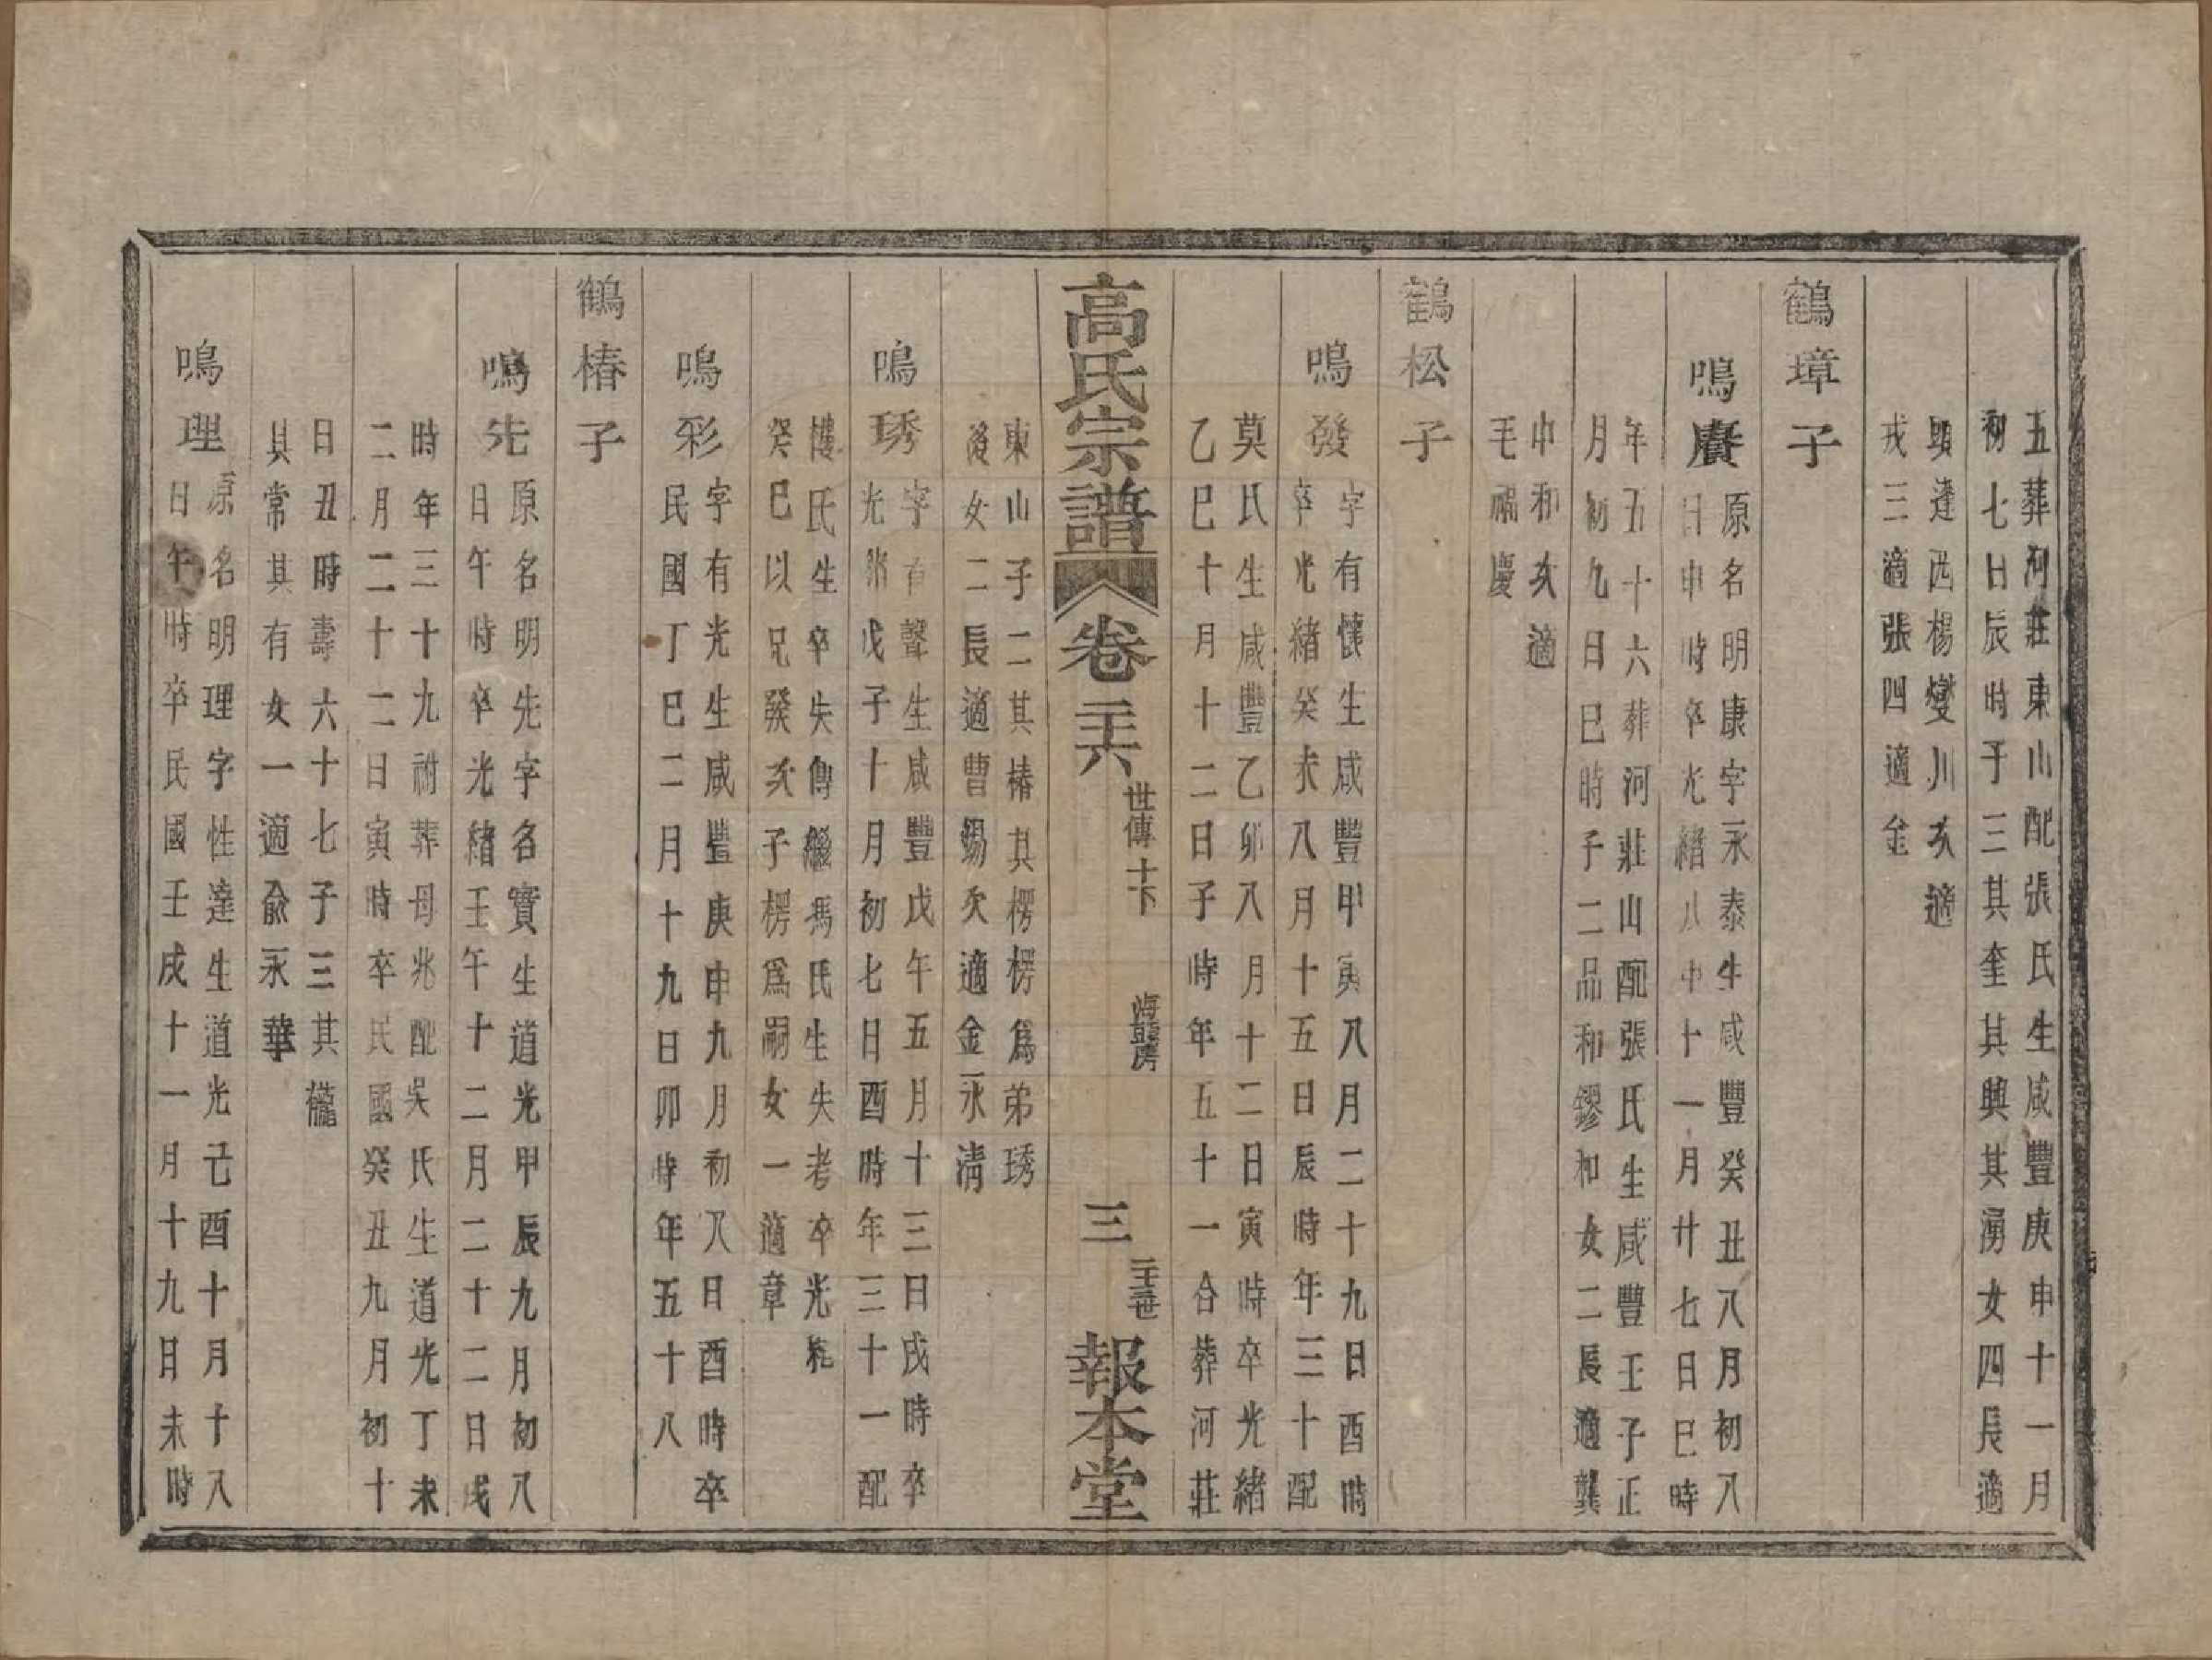 五葬河莊東山配張氏生咸豐庚申十一月
初七日辰時子三其奎其興其湧女四長適
頭蓬西楊燮川次適
戎三適張四適金
鶴璋子
鳴賡
原名明康字永泰生咸豐癸丑八月初八
日申時卒光緒八申十一月廿七日巳時
年五十六葬河莊山配張氏生咸豐壬子正
月初九日巳時子二品和鏐和女二長適龔
中和次適
毛福慶
鶴松子
鳴發
字有懷生咸豐甲寅八月二十九日酉時
卒光緒癸未八月十五日辰時年三十配
莫氏生咸豐乙卯八月十二日寅時卒光緒
乙巳十月十二日子時年五十一合葬河莊
高氏宗譜 卷二十六 世傳十下 海鼇房 三 二十三世 報本堂
東山子二其椿其楞楞為弟琇
後女二長適曹錫次適金永清
鳴琇
字有聲生咸豐戊午五月十三日戌時卒
光緒戊子十月初七日酉時年三十一配
樓氏生卒失傳繼馮氏生失考卒光緒
癸巳以兄發次子楞為嗣女一適章
鳴彩
字有光生咸豐庚申九月初八日酉時卒
民國丁巳二月十九日卯時年五十八
鶴椿子
鳴先
原名明先字名寶生道光甲辰九月初八
日午時卒光緒壬午十二月二十二日戌
時年三十九祔葬母兆配吳氏生道光丁未
二月二十二日寅時卒民國癸丑九月初十
日丑時壽六十七子三其櫳
其常其有女一適兪永華
鳴理
原名明理字性達生道光己酉十月十八
日午時卒民國壬戌十一月十九日未時